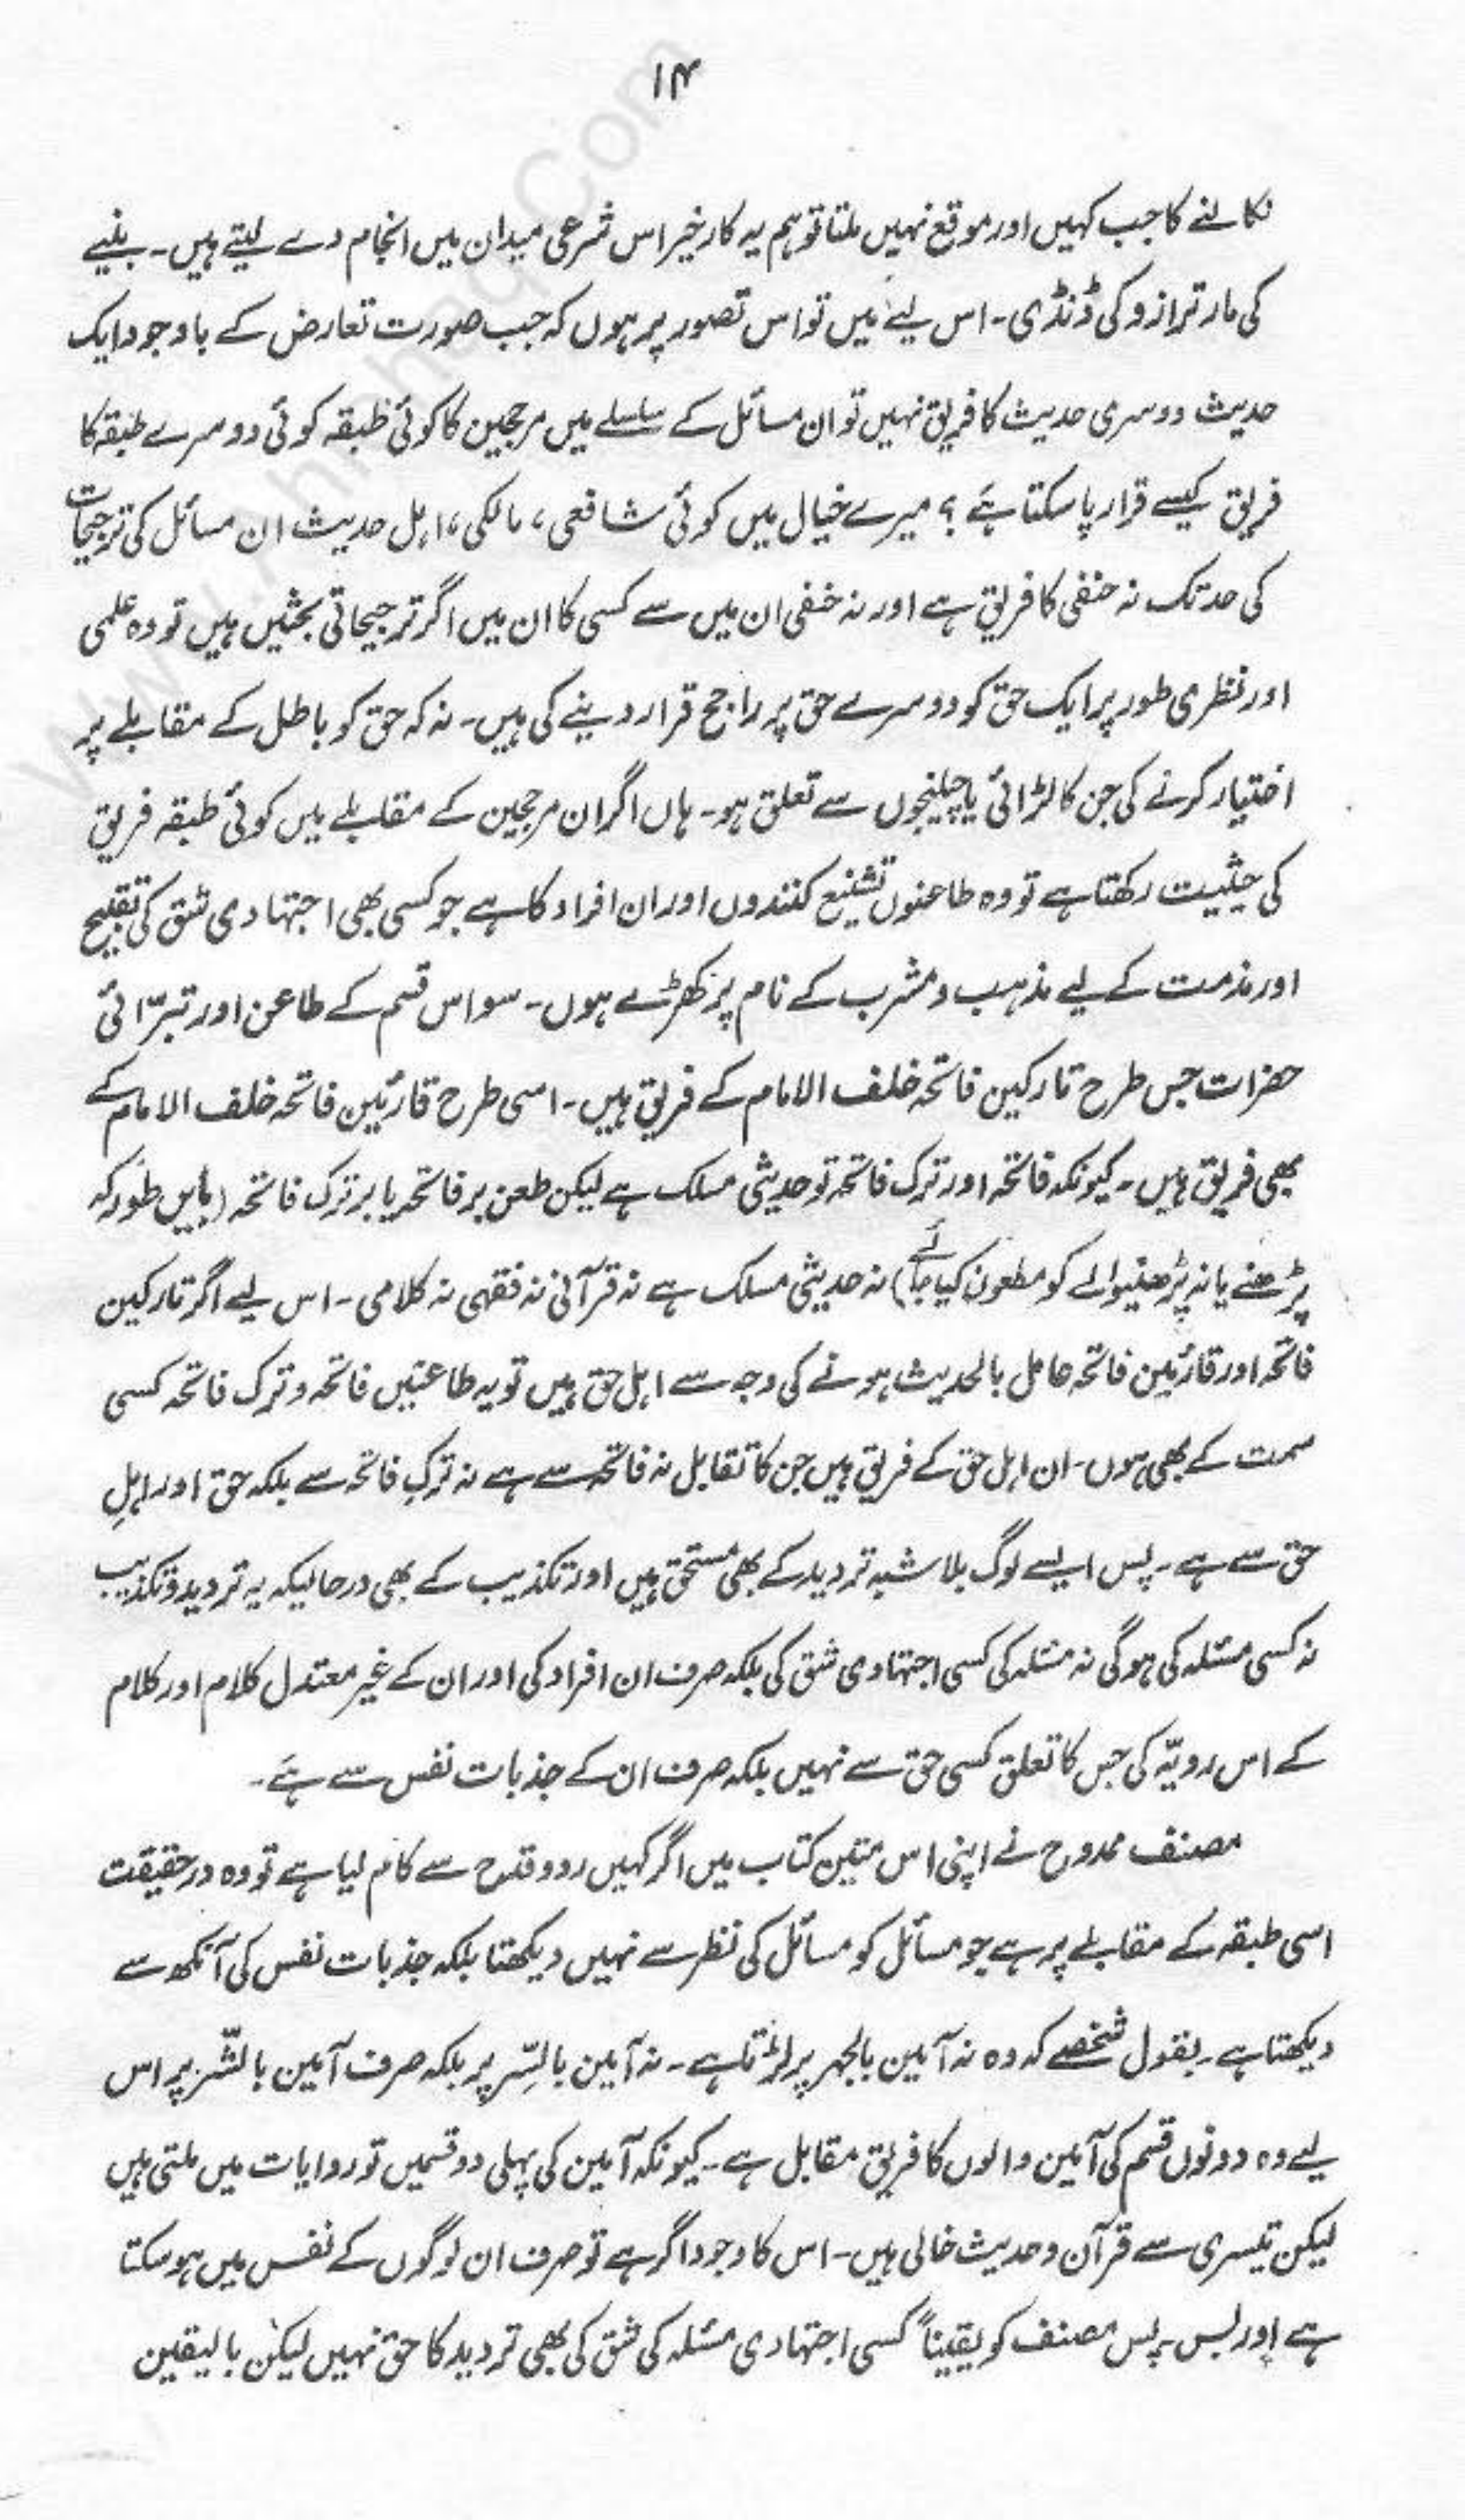 ۱۴
نکالنے کا جب کہیں اور موقع نہیں ملتا تو ہم یہ کار خیر اس شرعی میدان میں انجام دے لیتے ہیں۔ بنیے
کی مار ترازو کی ڈنڈی۔ اس لیے میں تو اس تصور پر ہوں کہ جب صورت تعارض کے باوجود ایک
حدیث دوسری حدیث کا فریق نہیں تو ان مسائل کے سلسلے میں مرجحین کا کوئی طبقہ کوئی دوسرے طبقہ کا
فریق کیسے قرار پا سکتا ہے؟ میرے خیال میں کوئی شافعی، مالکی، اہل حدیث ان مسائل کی ترجیحات
کی حد تک نہ حنفی کا فریق ہے اور نہ حنفی ان میں سے کسی کا ان میں اگر ترجیحاتی بحثیں ہیں تو وہ علمی
اور نظری طور پر ایک حق کو دوسرے حق پر راجح قرار دینے کی ہیں۔ نہ کہ حق کو باطل کے مقابلے پر
اختیار کرنے کی جن کا لڑائی یا چیلنجوں سے تعلق ہو۔ ہاں اگر ان مرجحین کے مقابلے میں کوئی طبقہ فریق
کی حیثیت رکھتا ہے تو وہ طاعنوں تشنیع کنندوں اور ان افراد کا ہے جو کسی بھی اجتہادی شق کی تقبیح
اور مذمت کے لیے مذہب و مشرب کے نام پر کھڑے ہوں۔ سو اس قسم کے طاعن اور تبرّائی
حضرات جس طرح تارکین فاتحہ خلف الامام کے فریق ہیں۔ اسی طرح قارئین فاتحہ خلف الامام کے
بھی فریق ہیں۔ کیونکہ فاتحہ اور ترک فاتحہ تو حدیثی مسلک ہے لیکن طعن بر فاتحہ یا بر ترک فاتحہ (بایں طور کہ
پڑھنے یا نہ پڑھنیوالے کو مطعون کیا جائے) نہ حدیثی مسلک ہے نہ قرآنی نہ فقہی نہ کلامی۔ اس لیے اگر تارکین
فاتحہ اور قارئین فاتحہ عامل بالحدیث ہونے کی وجہ سے اہل حق ہیں تو یہ طاعنین فاتحہ و ترک فاتحہ کسی
سمت کے بھی ہوں۔ ان اہل حق کے فریق ہیں جن کا تقابل نہ فاتحہ سے ہے نہ ترکِ فاتحہ سے بلکہ حق اور اہلِ
حق سے ہے۔ پس ایسے لوگ بلا شبہ تردید کے بھی مستحق ہیں اور تکذیب کے بھی درحالیکہ یہ تردید و تکذیب
نہ کسی مسئلہ کی ہو گی نہ مسئلہ کی کسی اجتہادی شق کی بلکہ صرف ان افراد کی اور ان کے غیر معتدل کلام اور کلام
کے اس رویّہ کی جس کا تعلق کسی حق سے نہیں بلکہ صرف ان کے جذبات نفس سے ہے۔
مصنف ممدوح نے اپنی اس متین کتاب میں اگر کہیں رد و قدح سے کام لیا ہے تو وہ درحقیقت
اسی طبقہ کے مقابلے پر ہے جو مسائل کو مسائل کی نظر سے نہیں دیکھتا بلکہ جذبات نفس کی آنکھ سے
دیکھتا ہے۔ بقول شخصے کہ وہ نہ آمین بالجہر پر لڑتا ہے۔ نہ آمین بالسِّر پر بلکہ صرف آمین بالشّر پر اس
لیے وہ دونوں قسم کی آمین والوں کا فریق مقابل ہے۔ کیونکہ آمین کی پہلی دو قسمیں تو روایات میں ملتی ہیں
لیکن تیسری سے قرآن و حدیث خالی ہیں۔ اس کا وجود اگر ہے تو صرف ان لوگوں کے نفس میں ہو سکتا
ہے اور بس۔ پس مصنف کو یقیناً کسی اجتہادی مسئلہ کی شق کی بھی تردید کا حق نہیں لیکن بالیقین